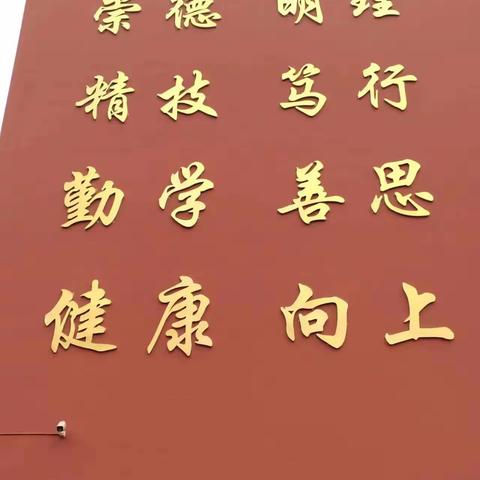 崇德 明理
精技 笃行
勤学 善思
健康 向上